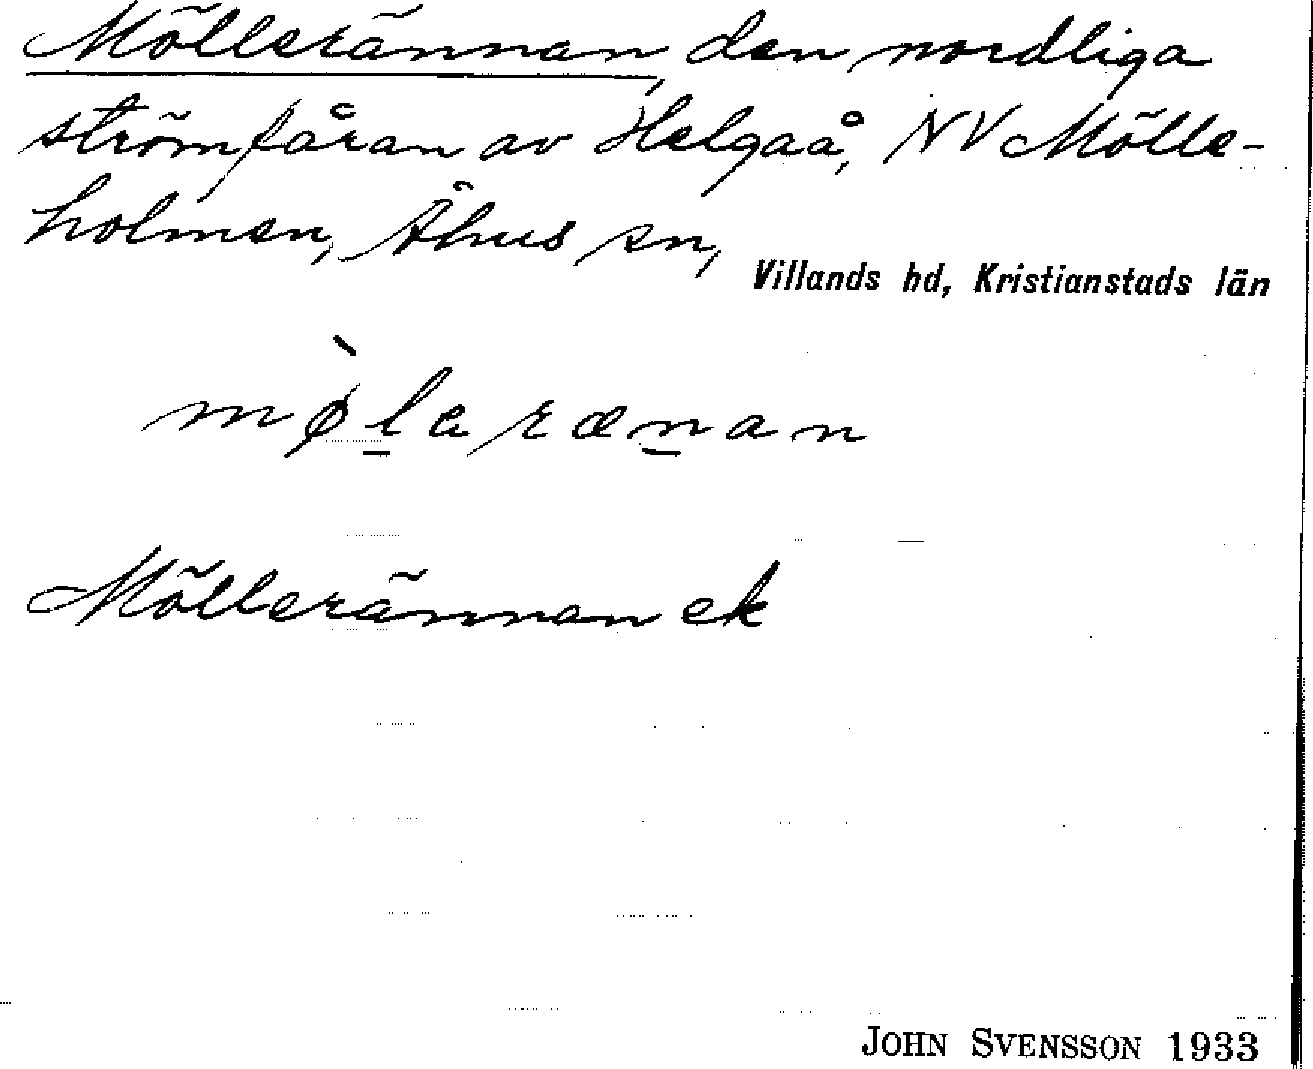 Möllerännan, den nordliga
strömfåran av Helgaå, NV Mölle-
holmen, Åhus sn,
Villands hd, Kristianstads län
mø̀l̲aræn̲an
Möllerännan ek
JOHN SVENSSON 1933